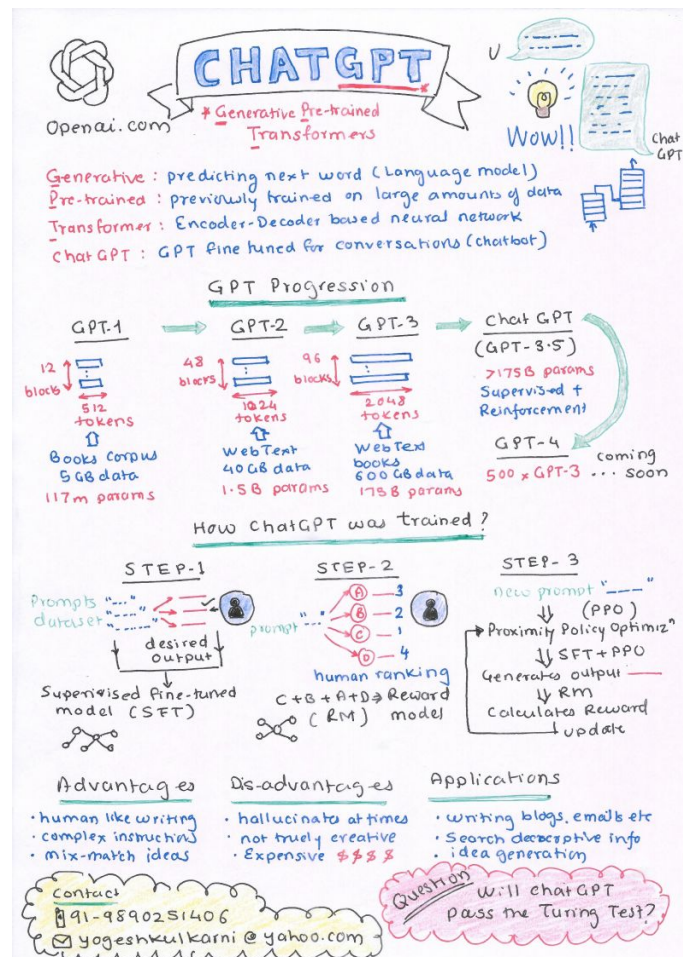 CHATGPT
* Generative Pre-trained
Transformers
Openai.com
U
Wow!!
Chat
GPT
Generative : predicting next word (Language model)
Pre-trained : previously trained on large amounts of data
Transformer : Encoder-Decoder based neural network
Chat GPT : GPT fine tuned for conversations (chatbot)
GPT Progression
GPT-1
12
blocks
512
tokens
Books Corpus
5 GB data
117m params
GPT-2
48
blocks
1024
tokens
WebText
40 GB data
1.5B params
GPT-3
96
blocks
2048
tokens
WebText
books
600 GB data
175B params
Chat GPT
(GPT-3.5)
>175B params
Supervised +
Reinforcement
GPT-4
500 x GPT-3 ... coming soon
How ChatGPT was trained?
STEP-1
Prompts
dataset
desired
output
Supervised fine-tuned
model (SFT)
STEP-2
prompt
A 3
B 2
C 1
D 4
human ranking
C+B+A+D → Reward
(RM) model
STEP-3
new prompt
(PPO)
Proximity Policy Optimizn
SFT + PPO
Generates output
RM
Calculates Reward
update
Advantages
· human like writing
· complex instructions
· mix-match ideas
Dis-advantages
· hallucinates at times
· not truely creative
· Expensive $$$$
Applications
· writing blogs, emails etc
· Search descriptive info
· idea generation
Contact
91-9890251406
yogeshkulkarni@yahoo.com
Question
Will chatGPT
pass the Turing Test?